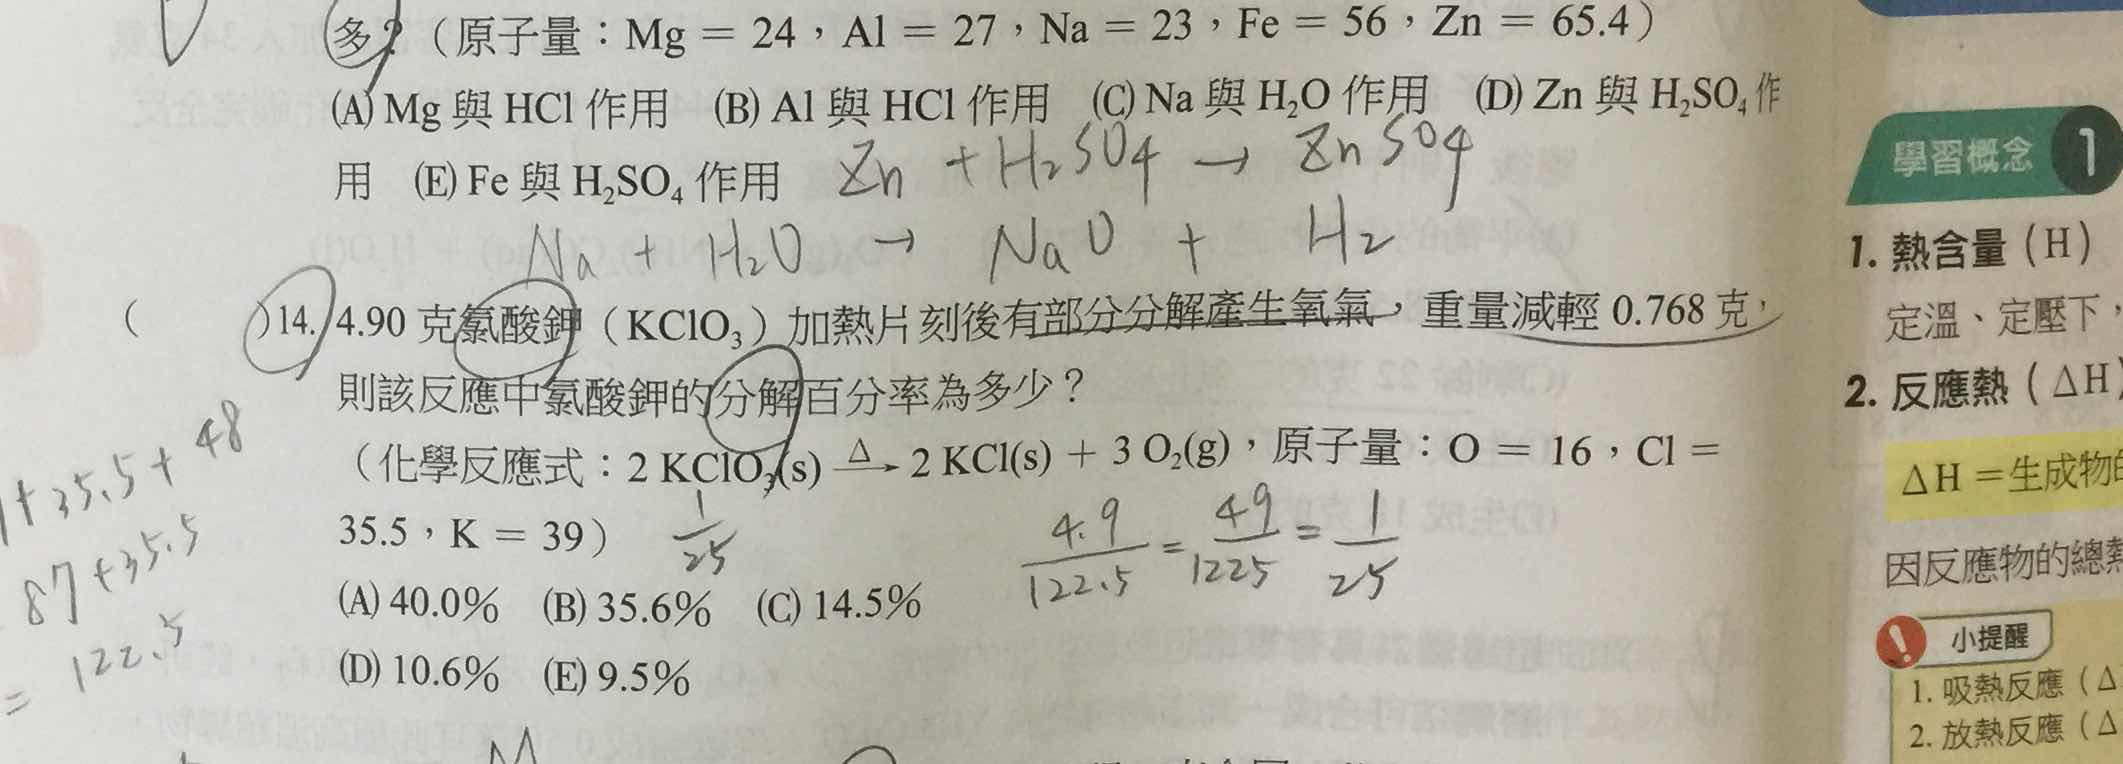 多?(原子量:Mg = 24,Al = 27,Na = 23,Fe = 56,Zn = 65.4)
(A) Mg 與 HCl 作用 (B) Al 與 HCl 作用 (C) Na 與 H₂O 作用 (D) Zn 與 H₂SO₄ 作
用 (E) Fe 與 H₂SO₄ 作用 Zn + H₂SO4 → ZnSO4
Na + H₂O → NaO + H₂
( )14. 4.90 克氯酸鉀(KClO₃)加熱片刻後有部分分解產生氧氣,重量減輕 0.768 克,
則該反應中氯酸鉀的分解百分率為多少?
(化學反應式:2 KClO₃(s) —Δ→ 2 KCl(s) + 3 O₂(g),原子量:O = 16,Cl =
35.5,K = 39) 1/25
4.9/122.5 = 49/1225 = 1/25
(A) 40.0% (B) 35.6% (C) 14.5%
(D) 10.6% (E) 9.5%
+35.5+48
87+35.5
= 122.5
學習概念 1
1. 熱含量(H)
定溫、定壓下,
2. 反應熱(ΔH)
ΔH = 生成物的
因反應物的總熱
小提醒
1. 吸熱反應(Δ
2. 放熱反應(Δ